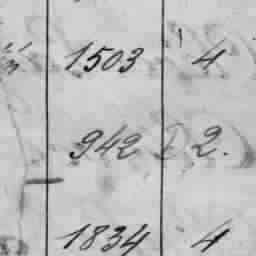 1503 4
942 2.
1834 4